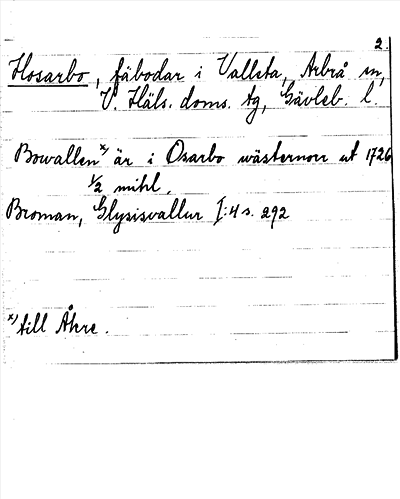 2.
Hosarbo, fäbodar i Vallsta, Arbrå sn,
V. Häls. doms. tg, Gävleb. l.
Bowallen x) är i Osarbo wästernorr ut 1726
1/2 mihl.
Broman, Glysisvallur I:4 s. 292
x) till Åhre.